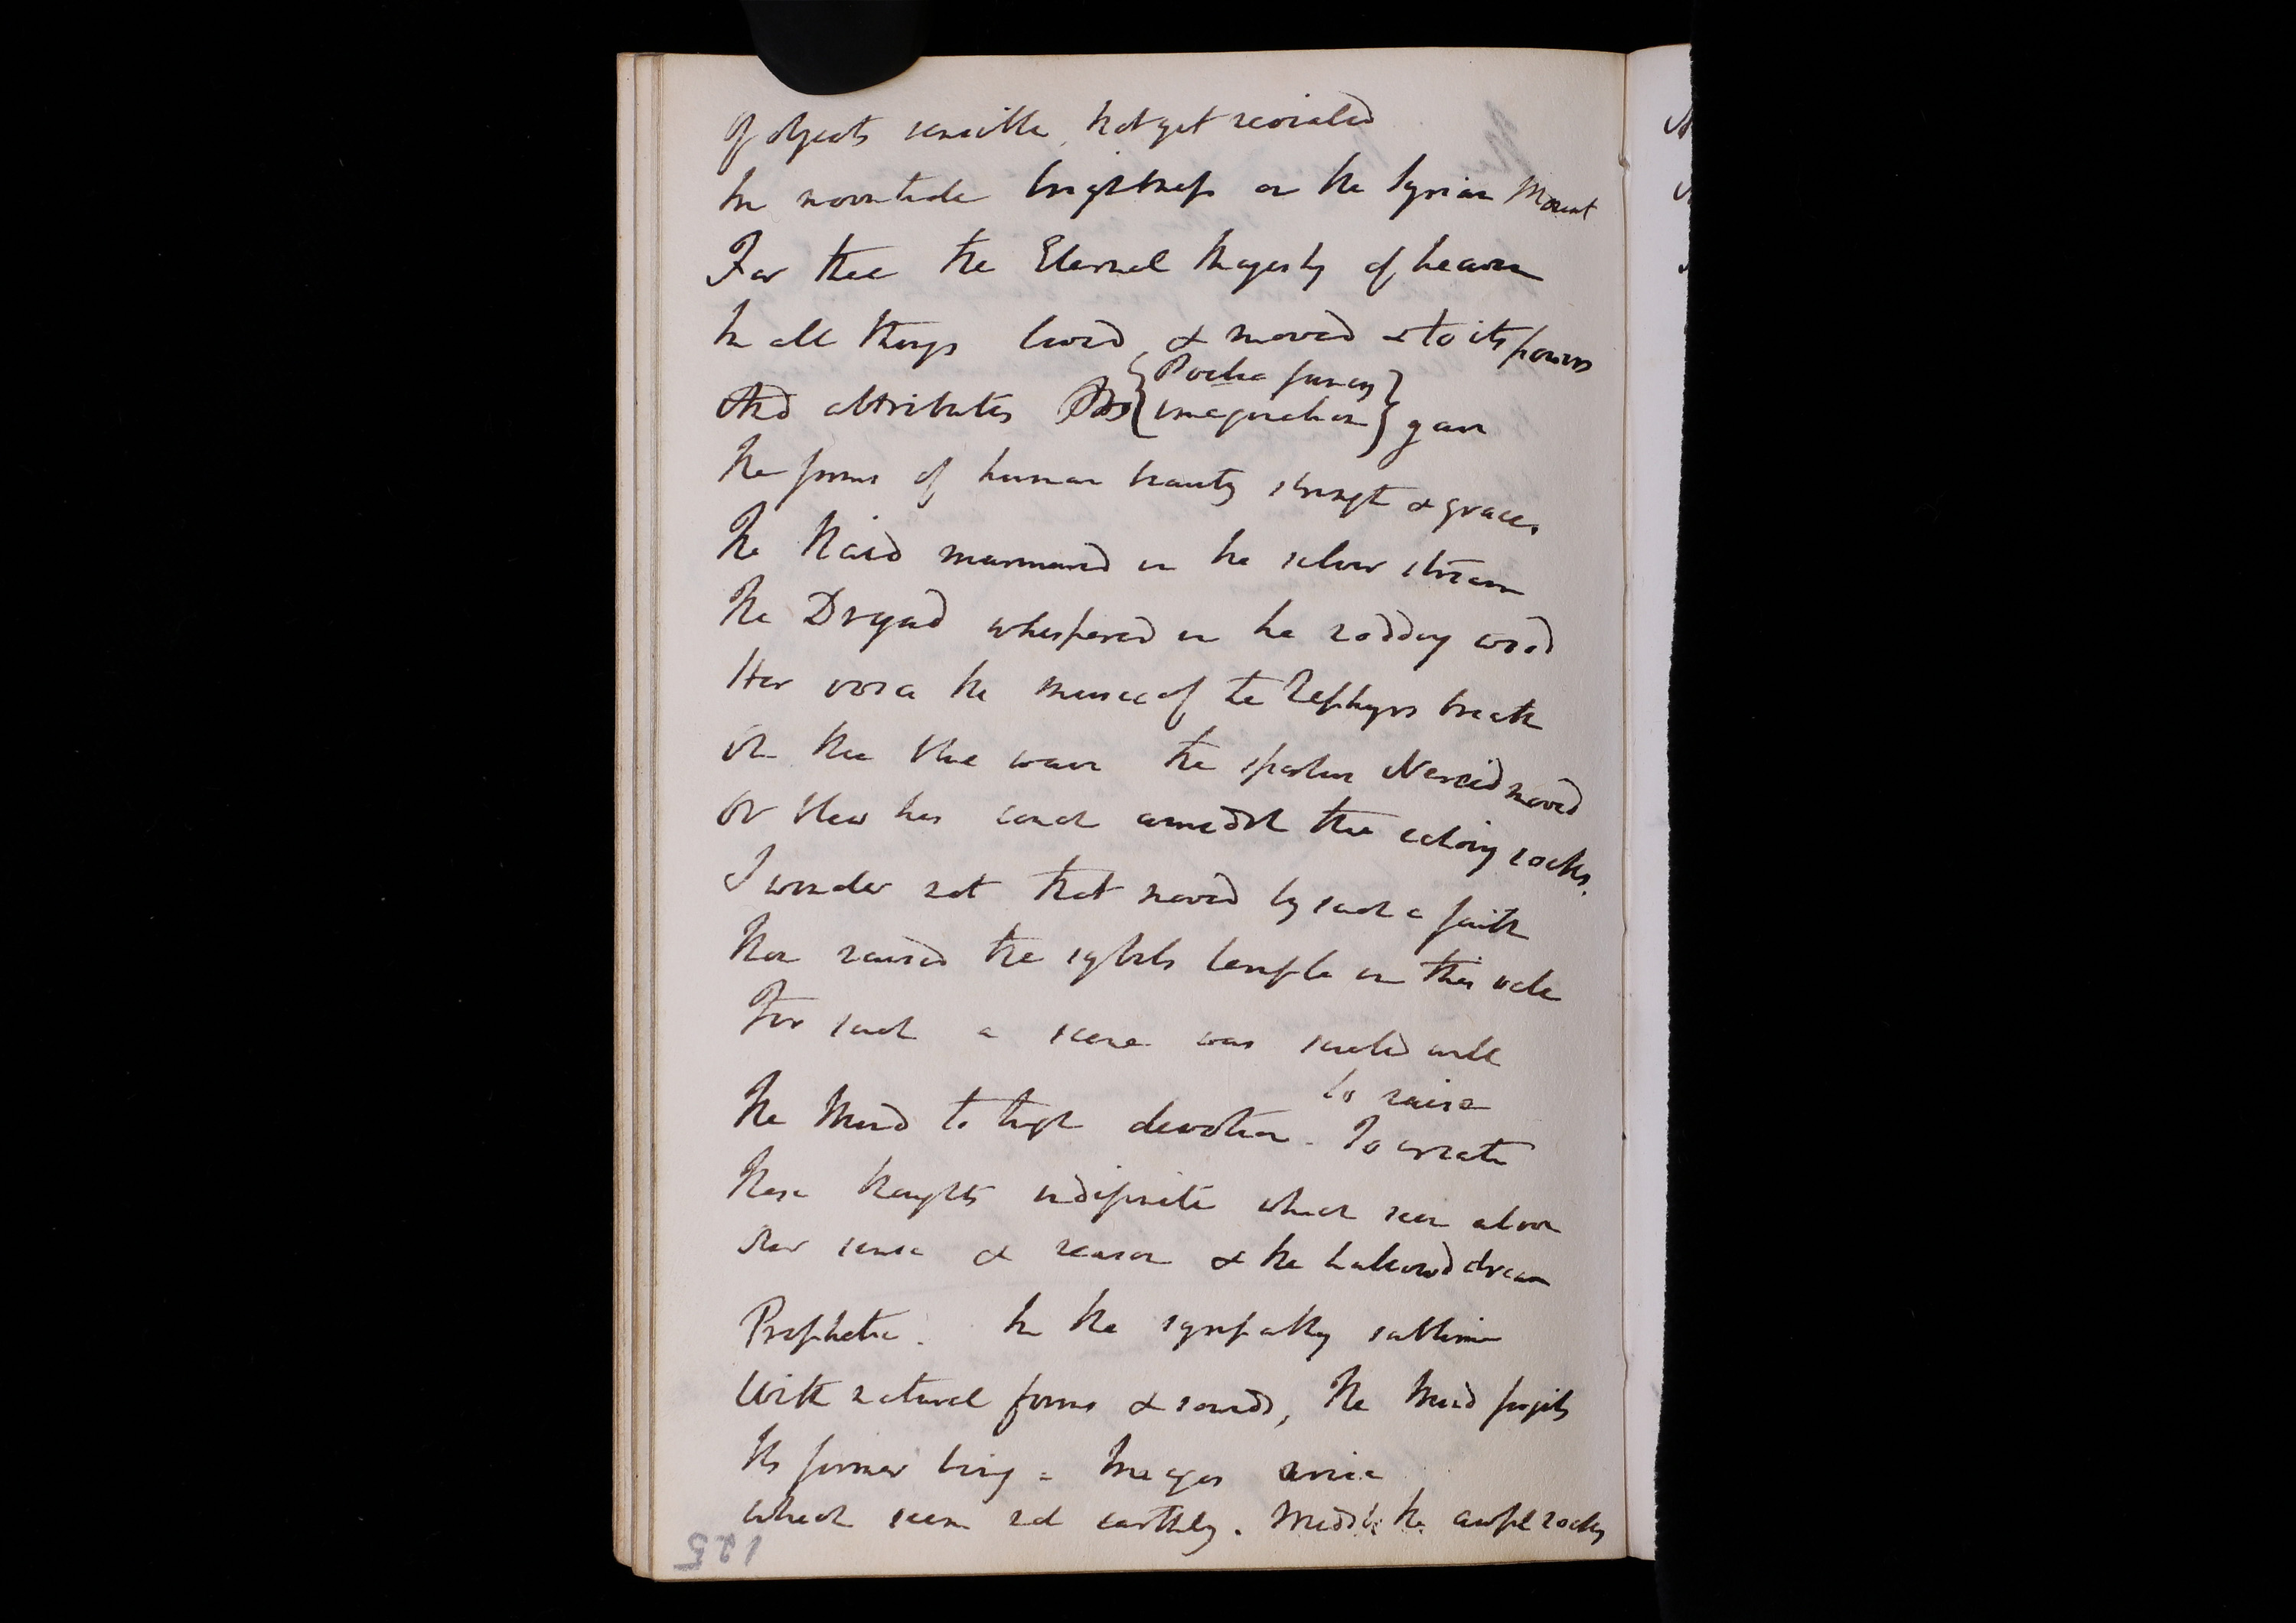 Of objects sensible, not yet revealed
In noontide brightness on the Syrian Mount
For thee the Eternal Majesty of heaven
In all things lived & moved & to its powers
Poetic fancy
And attributes imagination gave
The forms of human beauty strength & grace.
The Naiad murmured in the silver stream
The Dryad whispered in the nodding wood
Her voice the music of the Zephyrs breath
On the blue wave the sportive Nereid moved
Or blew her conch amidst the echoing rocks.
I wonder not that moved by such a faith
Men raised the sybils temple in this vale
For such a scene was suited well
to raise
The Mind to high devotion. To create
These thoughts indefinite which seem above
Our sense & reason & the hallowed dream
Prophetic. In the sympathy sublime
With natural forms & sounds, the Mind forgets
Its former being - Images arise
which seem not earthly. Midst the awful rocks
125